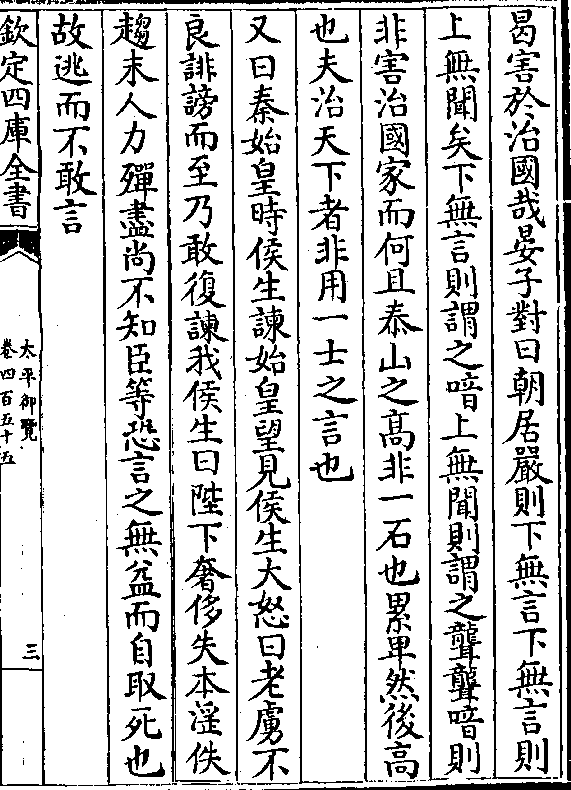 曷害於治國哉晏子對曰朝居嚴則下無言下無言則
上無聞矣下無言則謂之喑上無聞則謂之聾聾喑則
非害治國家而何且泰山之髙非一石也累卑然後高
也夫治天下者非用一士之言也
又曰秦始皇時侯生諫始皇望見侯生大怒曰老虜不
良誹謗而至乃敢復諫我侯生曰陛下奢侈失本淫佚
趨末人力殫盡尚不知臣等恐言之無益而自取死也
故逃而不敢言
欽定四庫全書
太平御覽
卷四百五十五
三